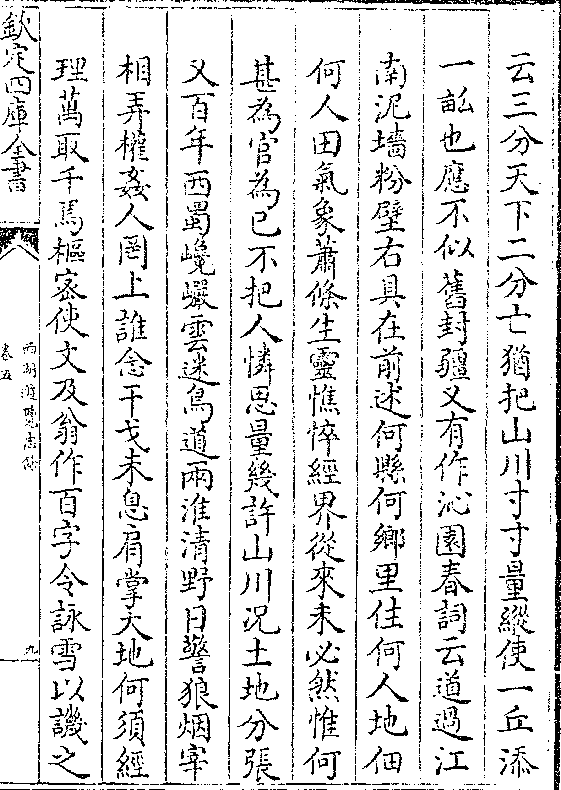 云三分天下二分亡猶把山川寸寸量縱使一丘添
一畝也應不似舊封疆又有作沁園春詞云道過江
南泥墻粉壁右具在前述何縣何鄉里住何人地佃
何人田氣象蕭條生靈憔悴經界從來未必然惟何
甚為官為己不把人憐思量幾許山川况土地分張
又百年西蜀巉巗雲迷鳥道兩淮清野日警狼烟宰
相弄權姦人罔上誰念干戈未息肩掌大地何須經
理萬取千焉樞密使文及翁作百字令詠雪以譏之
欽定四庫全書
西湖遊覽志餘
卷五
九